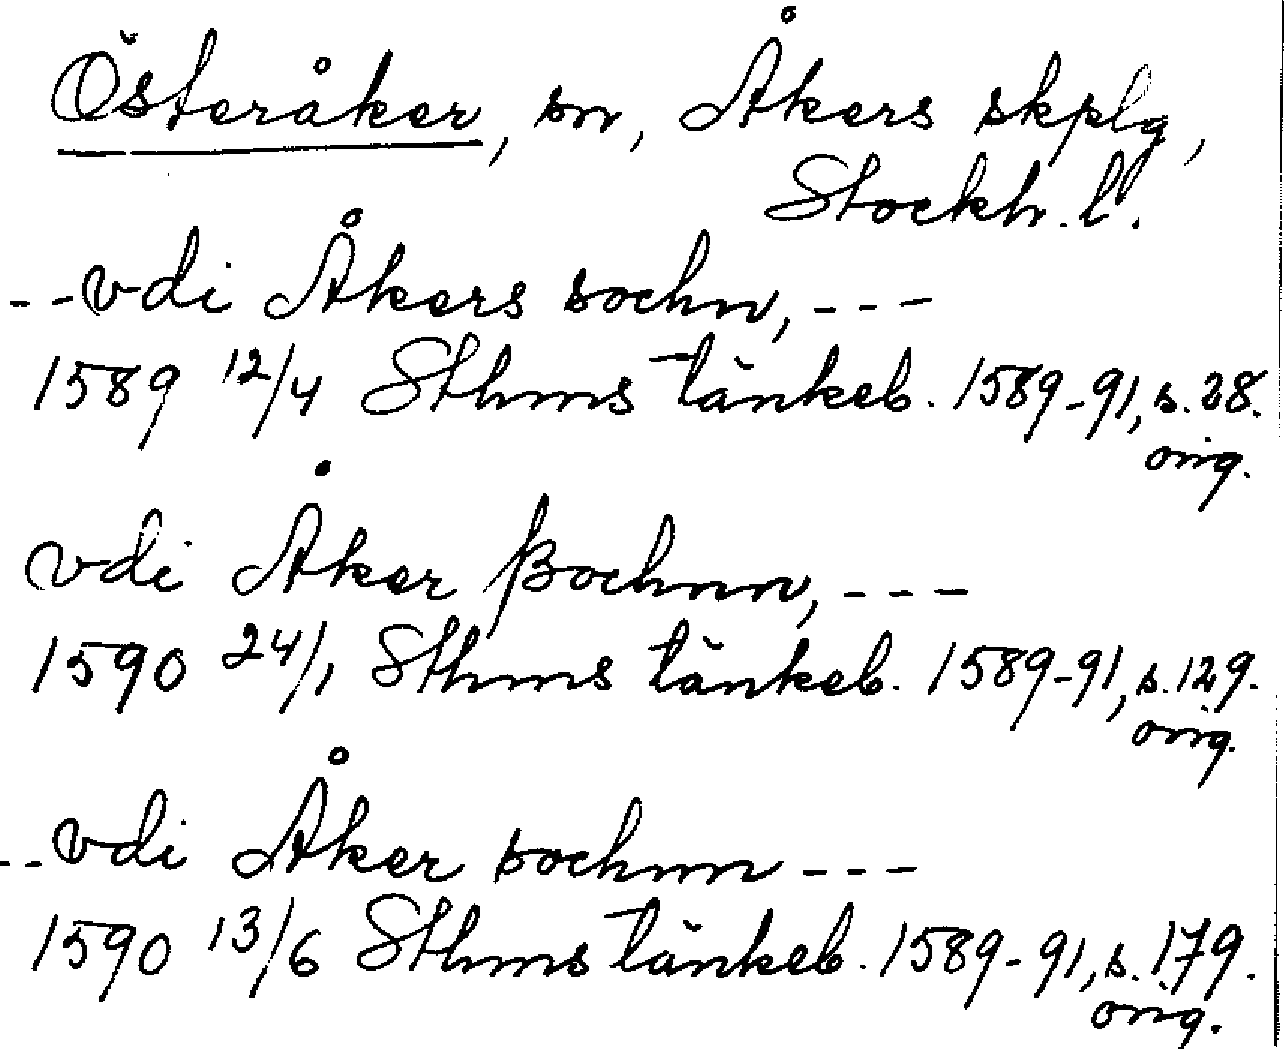 Österåker, sn, Åkers skplg,
Stockh. l.
--vdi Åkers sochn,---
1589 12/4 Sthms tänkeb. 1589-91, s. 28.
orig.
vdi Åker ßochnn,---
1590 24/1 Sthms tänkeb. 1589-91, s. 129.
orig.
--vdi Åker sochnn---
1590 13/6 Sthms tänkeb. 1589-91, s. 179.
orig.